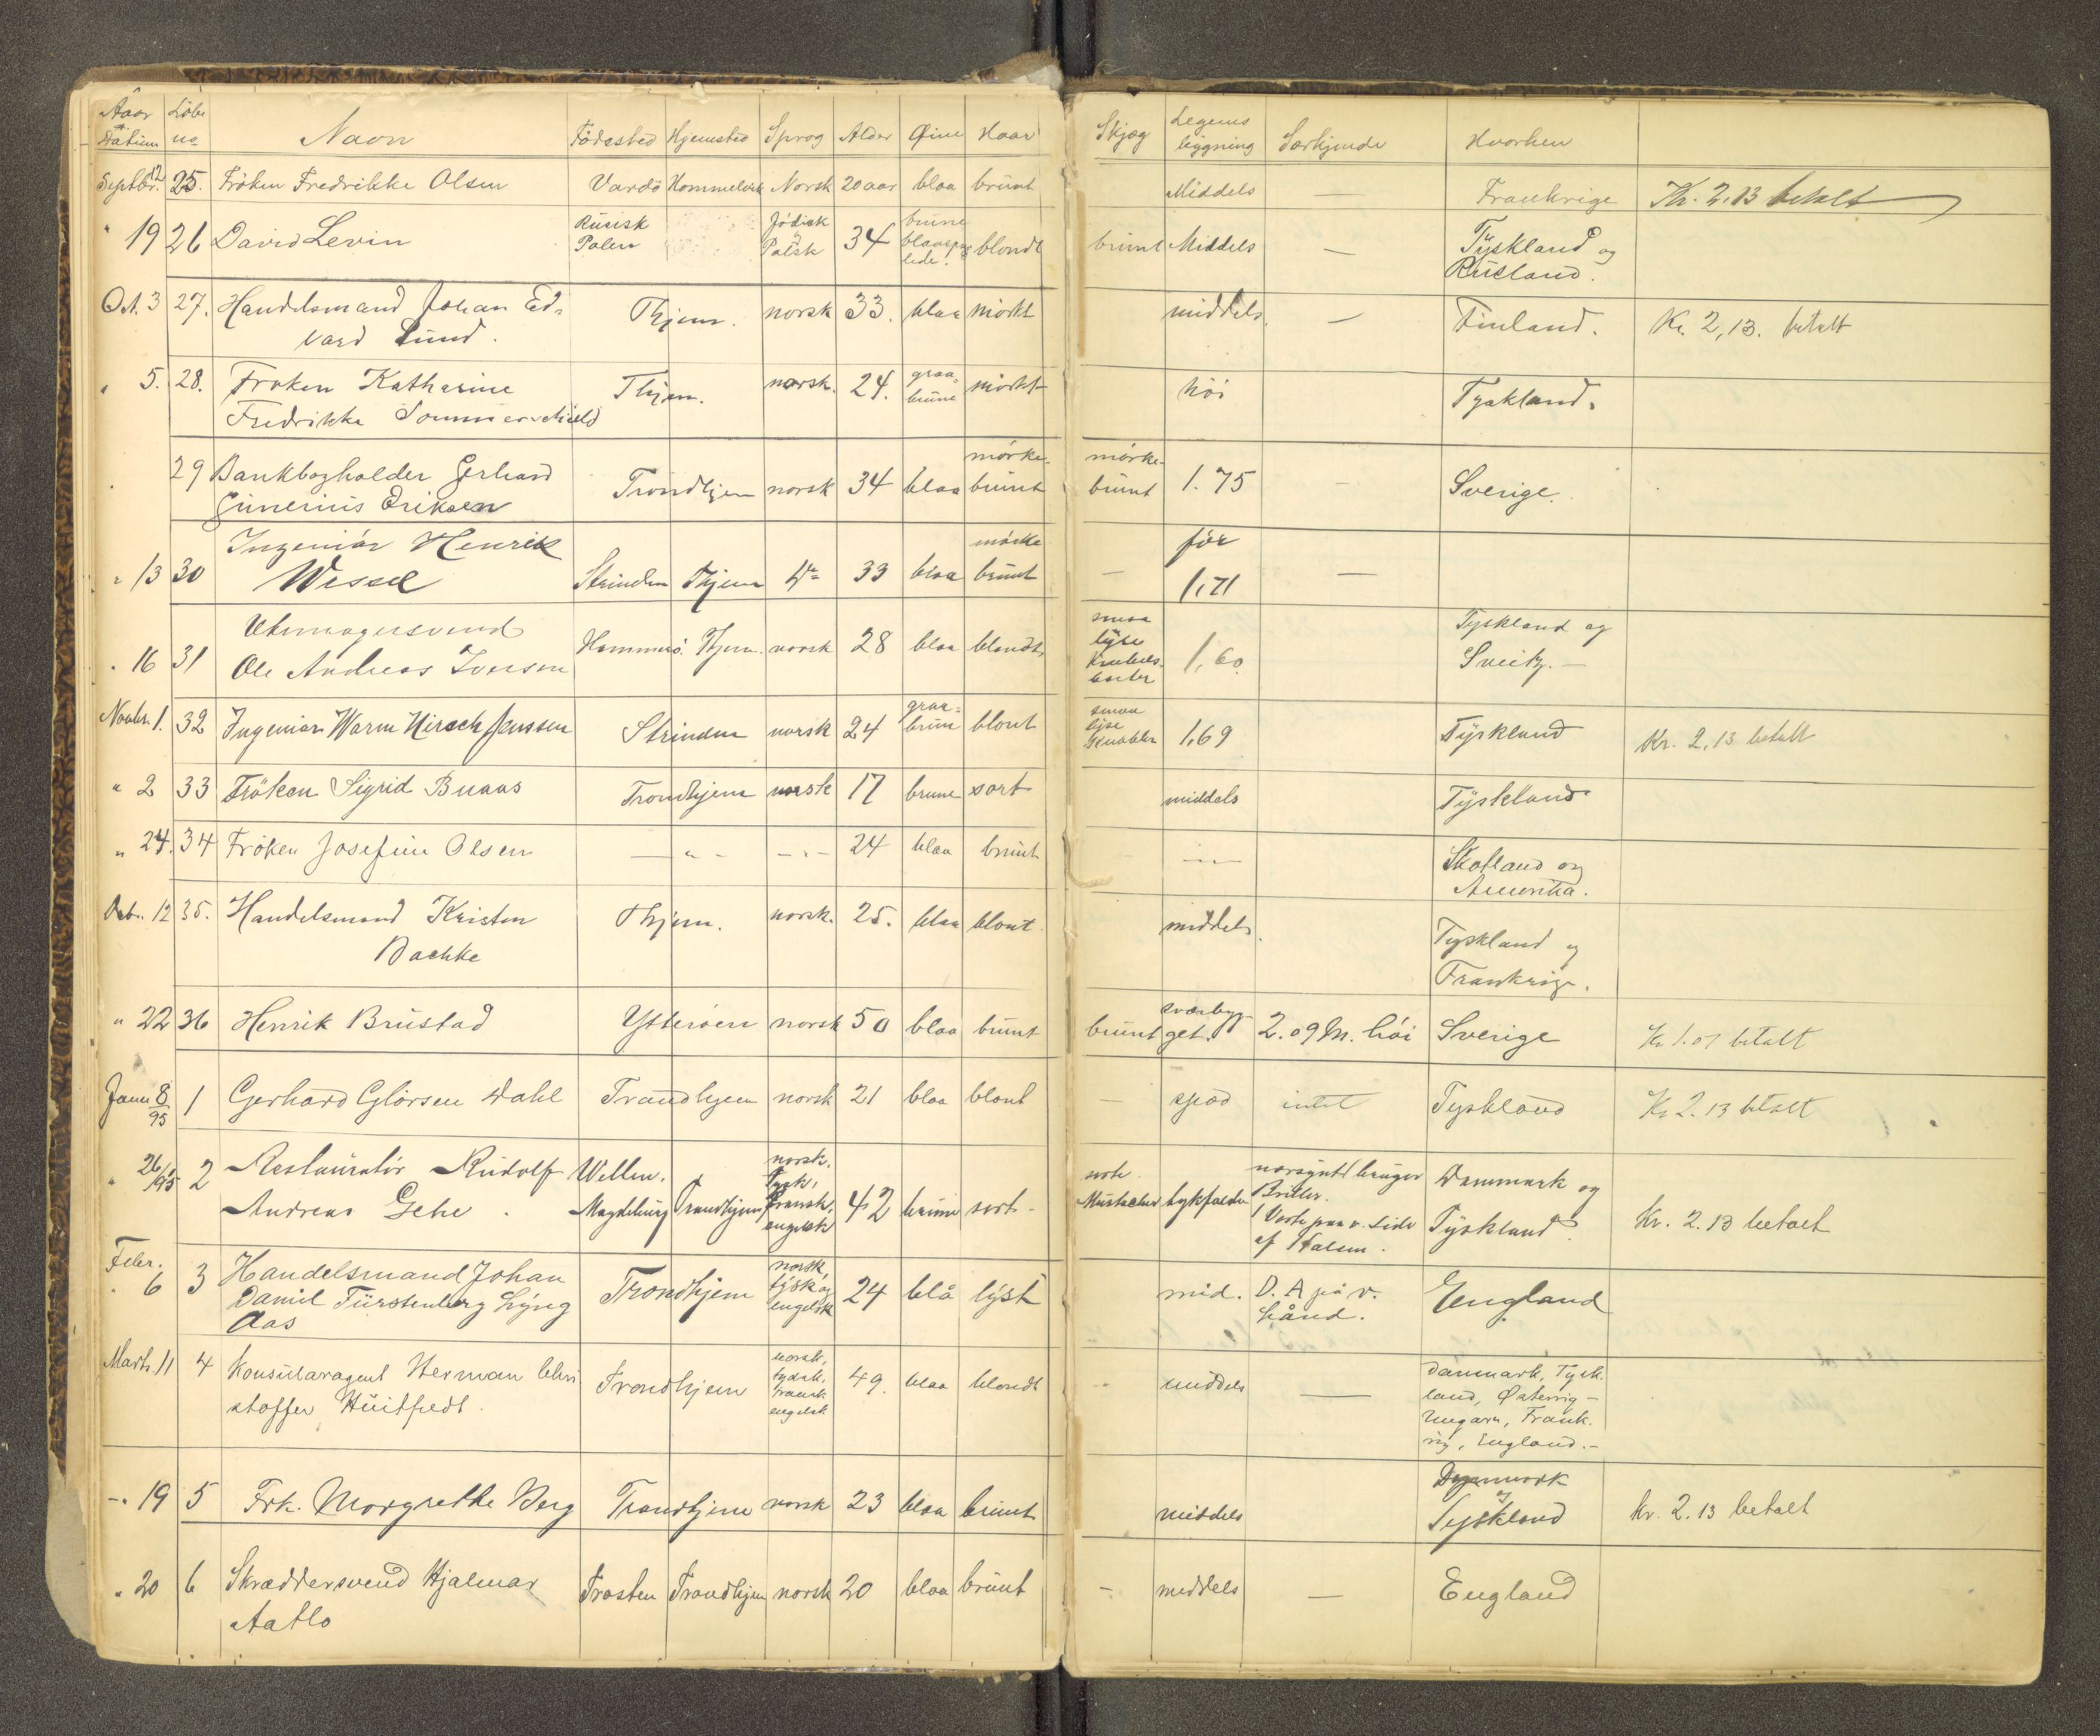 Aar Datum Løbe no Navn Födested Hjemsted Sprog Alder Øine Haar Skjæg Legems bygning Særkjende Hvorhen
Septbr. 12 25. Fröken Fredrikke Olsen Vardö Hommelvik Norsk 20 aar blaa brunt Middels — Frankrige Kr. 2,13 betalt
" 19 26 David Levin Rusisk Polen Jödisk Polsk 34 brune blondt brunt Middels — Tyskland og Rusland.
Oct. 3 27. Handelsmand Johan Edvard Lund. Thjem. norsk 33. blaa mörkt middels. — Finland. Kr. 2,13. betalt
" 5. 28. Froken Katharine Fredrikke Sommerschield Thjem. norsk. 24. graa brune mörkt höi Tyskland.
29 Bankbogholder Gerhard Gunerius Eriksen Trondhjem norsk 34 blaa mörkebrunt mörkebrunt 1.75 — Sverige.
" 13 30 Ingeniör Henrik Wessel Strinden Thjem do 33 blaa mörke brunt — för 1,71 —
" 16 31 Uhrmagersvend Ole Andreas Iversen Hammerö. Thjem. norsk 28 blaa blondt smaa lyse Knebelsbarter 1,60. Tyskland og Sveitz. —
Novbr. 1. 32 Ingeniør Warm Hirsch Janssen Strinden norsk 24 graa= brun blont smaa lyse Knebler 1,69 Tyskland Kr. 2,13 betalt
" 2 33 Fröken Sigrid Buaas Trondhjem norsk 17 brune sort middels Tyskland
" 24. 34 Fröken Josefine Olsen — " — — " — 24 blaa brunt — " — Skotland og Amerika.
Decbr. 12 35. Handelsmand Kristen Bachke Thjem. norsk. 25. blaa blont. middels. Tyskland og Frankrige.
" 22 36 Henrik Brustad Ytteröen norsk 50 blaa brunt brunt sværbygget. 2.09 M. höi Sverige Kr 1.07 betalt
Janu 8/95 1 Gerhard Glörsen Dahl Trondhjem norsk 21 blaa blont — spæd intet Tyskland Kr 2.13 betalt
" 26/1 95 2 Restauratör Rudolf Andreas Gehe. Wellen. Magdeburg Trondhjem norsk, tysk, fransk, engelsk 42 brune sort. sorte Mustacher tykfalden nærsynt bruger Briller. 1 Vorte paa v. Side af Halsen. Danmark og Tyskland. Kr. 2.13 betalt
Febr. 6 3 Handelsmand Johan Daniel Fürstenberg Lyng Aas Trondhjem norsk tysk og engelsk 24 blå lyst mid. D. A på v. hånd. England
Marts. 11 4 Konsularagent Herman Chri stoffer Huitfedt. Trondhjem norsk, tydsk, fransk engelsk 49. blaa blondt — middels — Danmark, Tysk. land, Østerrig- Ungarn, Frank. rig, England. -
-" 19 5 Frk. Margrethe Berg Trondhjem norsk 23 blaa brunt middels Danmark og Tyskland Kr. 2.13 betalt
" 20 6 Skræddersvend Hjalmar Aatlo Frosten Trondhjem norsk 20 blaa brunt — middels — England